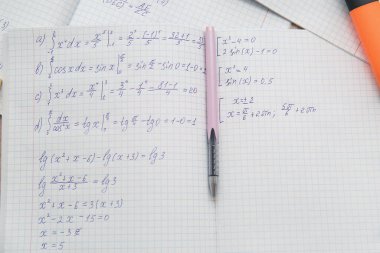 a) ∫ x⁴dx = x⁵/5 | = 2⁵/5 - (-1)⁵/5 = 32+1/5 = 33/5
b) ∫ cos x dx = sin x | = sin π/2 - sin 0 = 1-0 = 1
c) ∫ x³dx = x⁴/4 | = 3⁴/4 - 1⁴/4 = 81-1/4 = 20
d) ∫ dx/cos²x = tg x | = tg π/4 - tg 0 = 1-0 = 1
lg(x²+x-6) - lg(x+3) = lg3
lg x²+x-6/x+3 = lg3
x²+x-6 = 3(x+3)
x²-2x-15=0
x = -3
x = 5
2 sin(x)-1=0
sin(x)=0,5
x=±2
x = π/6 + 2πn; 5π/6 + 2πn